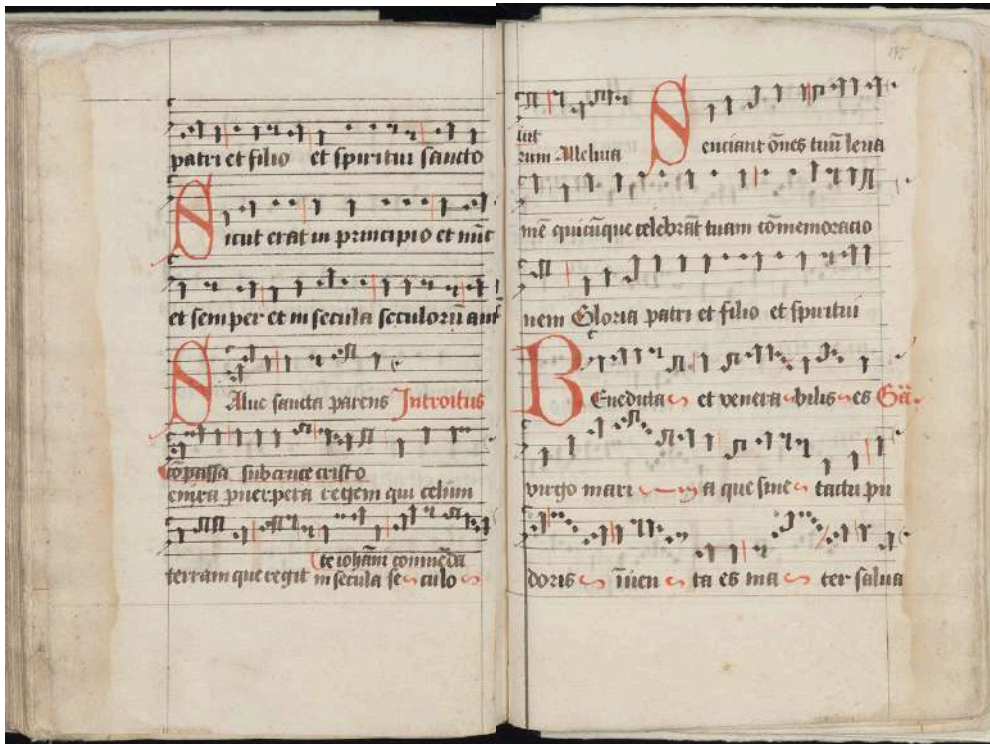 patri et filio et spiritui sancto
Sicut erat in principio et nūc
et semper et in secula seculorū amē
SAlue sancta parens Introitus
cōpassa sub cruce cristo
enixa puerpera regem qui celum
te iohāni commēda
terram que regit in secula se culo
195
uit
rum Alleluia Senciant ōnes tuū leua
mē quicūque celebrāt tuam cōmemoracio
nem Gloria patri et filio et spiritui
BEnedicta et venera bilis es Gͣ.
virgo mari a que sine tactu pu
doris īuen ta es ma ter salua